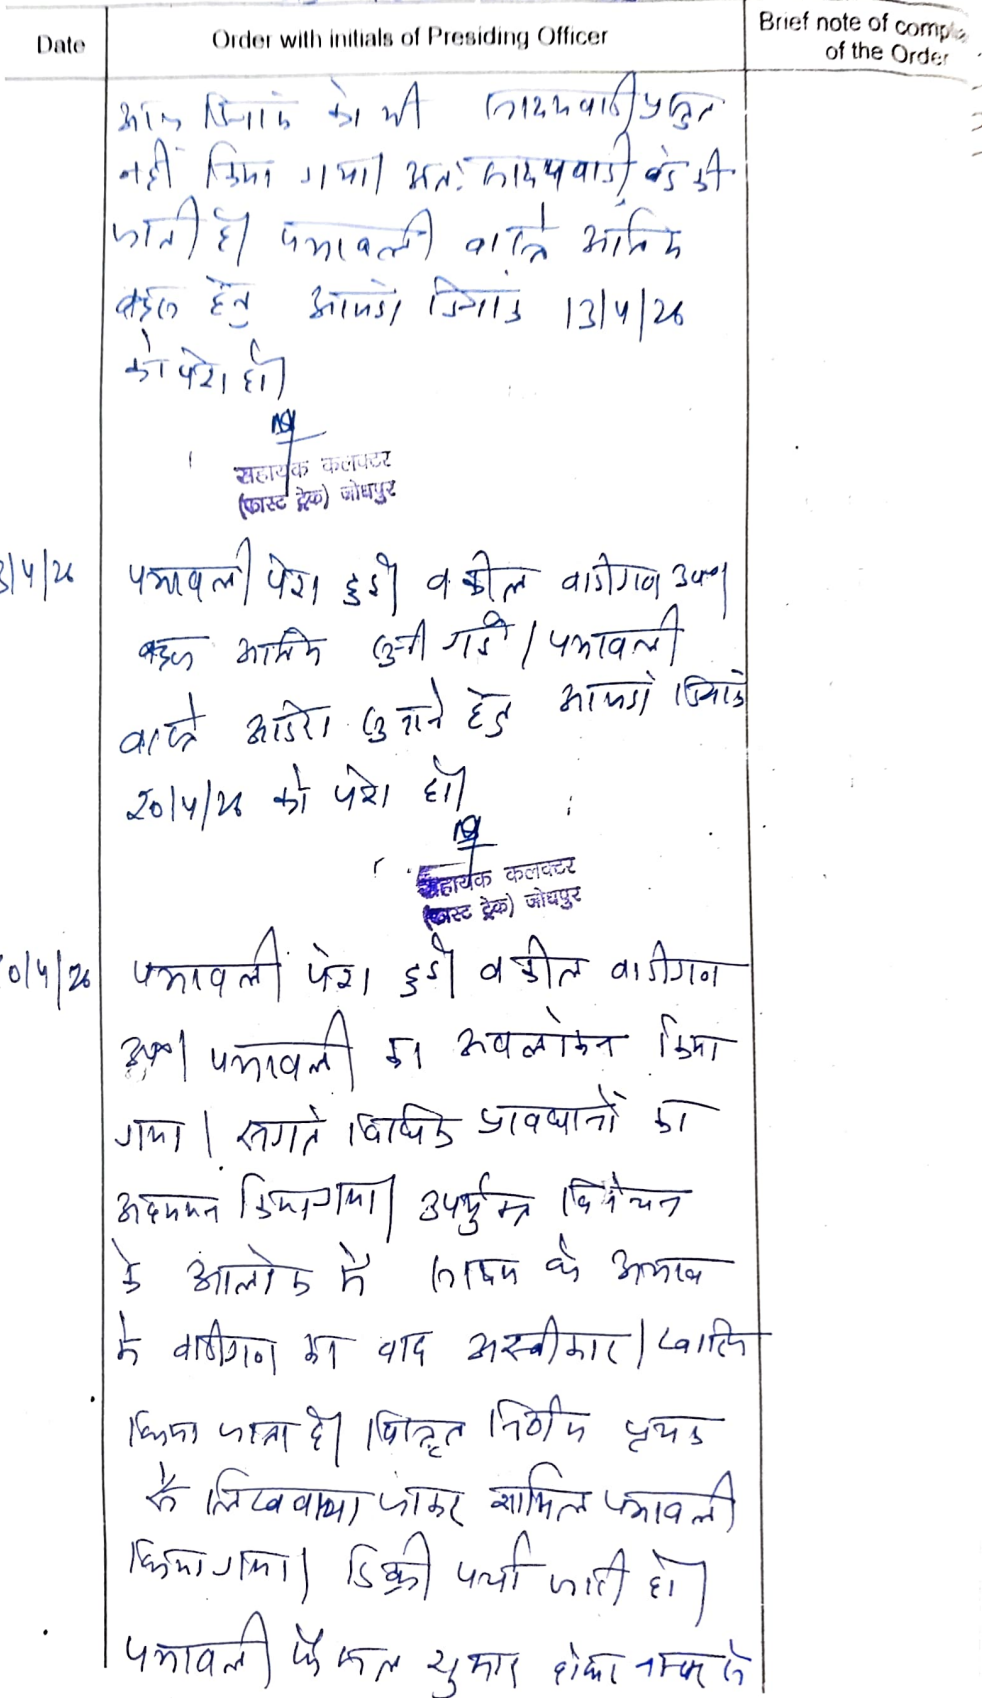 Date
Order with initials of Presiding Officer
Brief note of compl
of the Order
आज दिनांक को भी साक्ष्यवादी प्रस्तुत
नहीं किया गया। अतः साक्ष्यवादी बंद की
जाती है। पत्रावली वास्ते अंतिम
बहस हेतु आगामी दिनांक 13/4/26
को पेश हो।
सहायक कलक्टर
(फास्ट ट्रेक) जोधपुर
3/4/26
पत्रावली पेश हुई। वकील वादीगण उप०।
बहस अंतिम सुनी गई। पत्रावली
वास्ते आदेश सुनाने हेतु आगामी दिनांक
20/4/26 को पेश हो।
सहायक कलक्टर
(फास्ट ट्रेक) जोधपुर
0/4/26
पत्रावली पेश हुई। वकील वादीगण
उप०। पत्रावली का अवलोकन किया
गया। विधिक प्रावधानों का
अध्ययन किया गया। उपर्युक्त विवेचन
के आलोक में साक्ष्य के अभाव
में वादीगण का वाद अस्वीकार/खारिज
किया जाता है। विस्तृत निर्णय पृथक
से लिखवाया जाकर शामिल पत्रावली
किया गया। डिक्री पर्चा जारी हो।
पत्रावली फैसल शुमार होकर नम्बर से